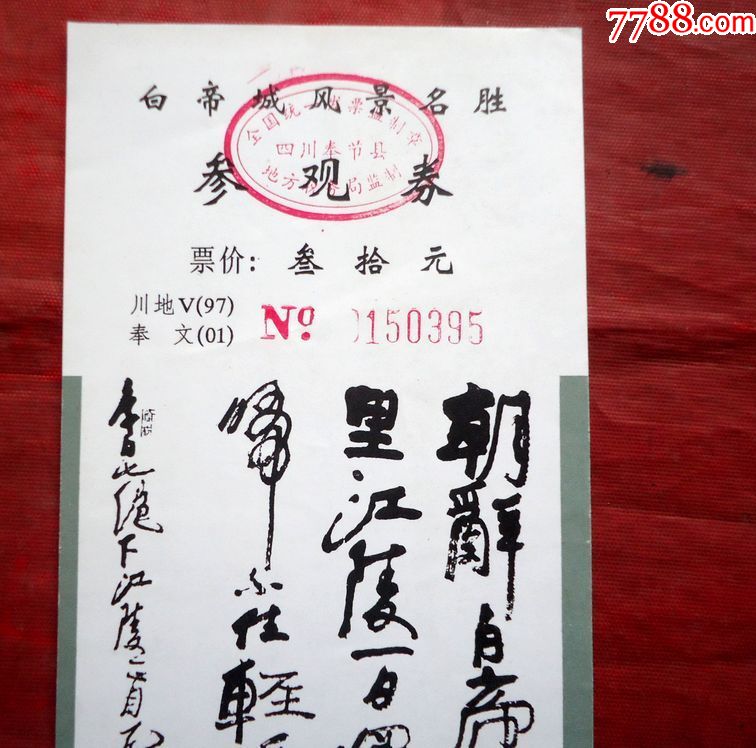 7788.com
白帝城风景名胜
全国统一发票监制章
四川奉节县
地方税务局监制
参观券
票价：叁拾元
川地V(97)
奉 文(01)
No 0150395
朝辭白帝
里江陵一日還
啼不住輕舟
李白七绝下江陵一首